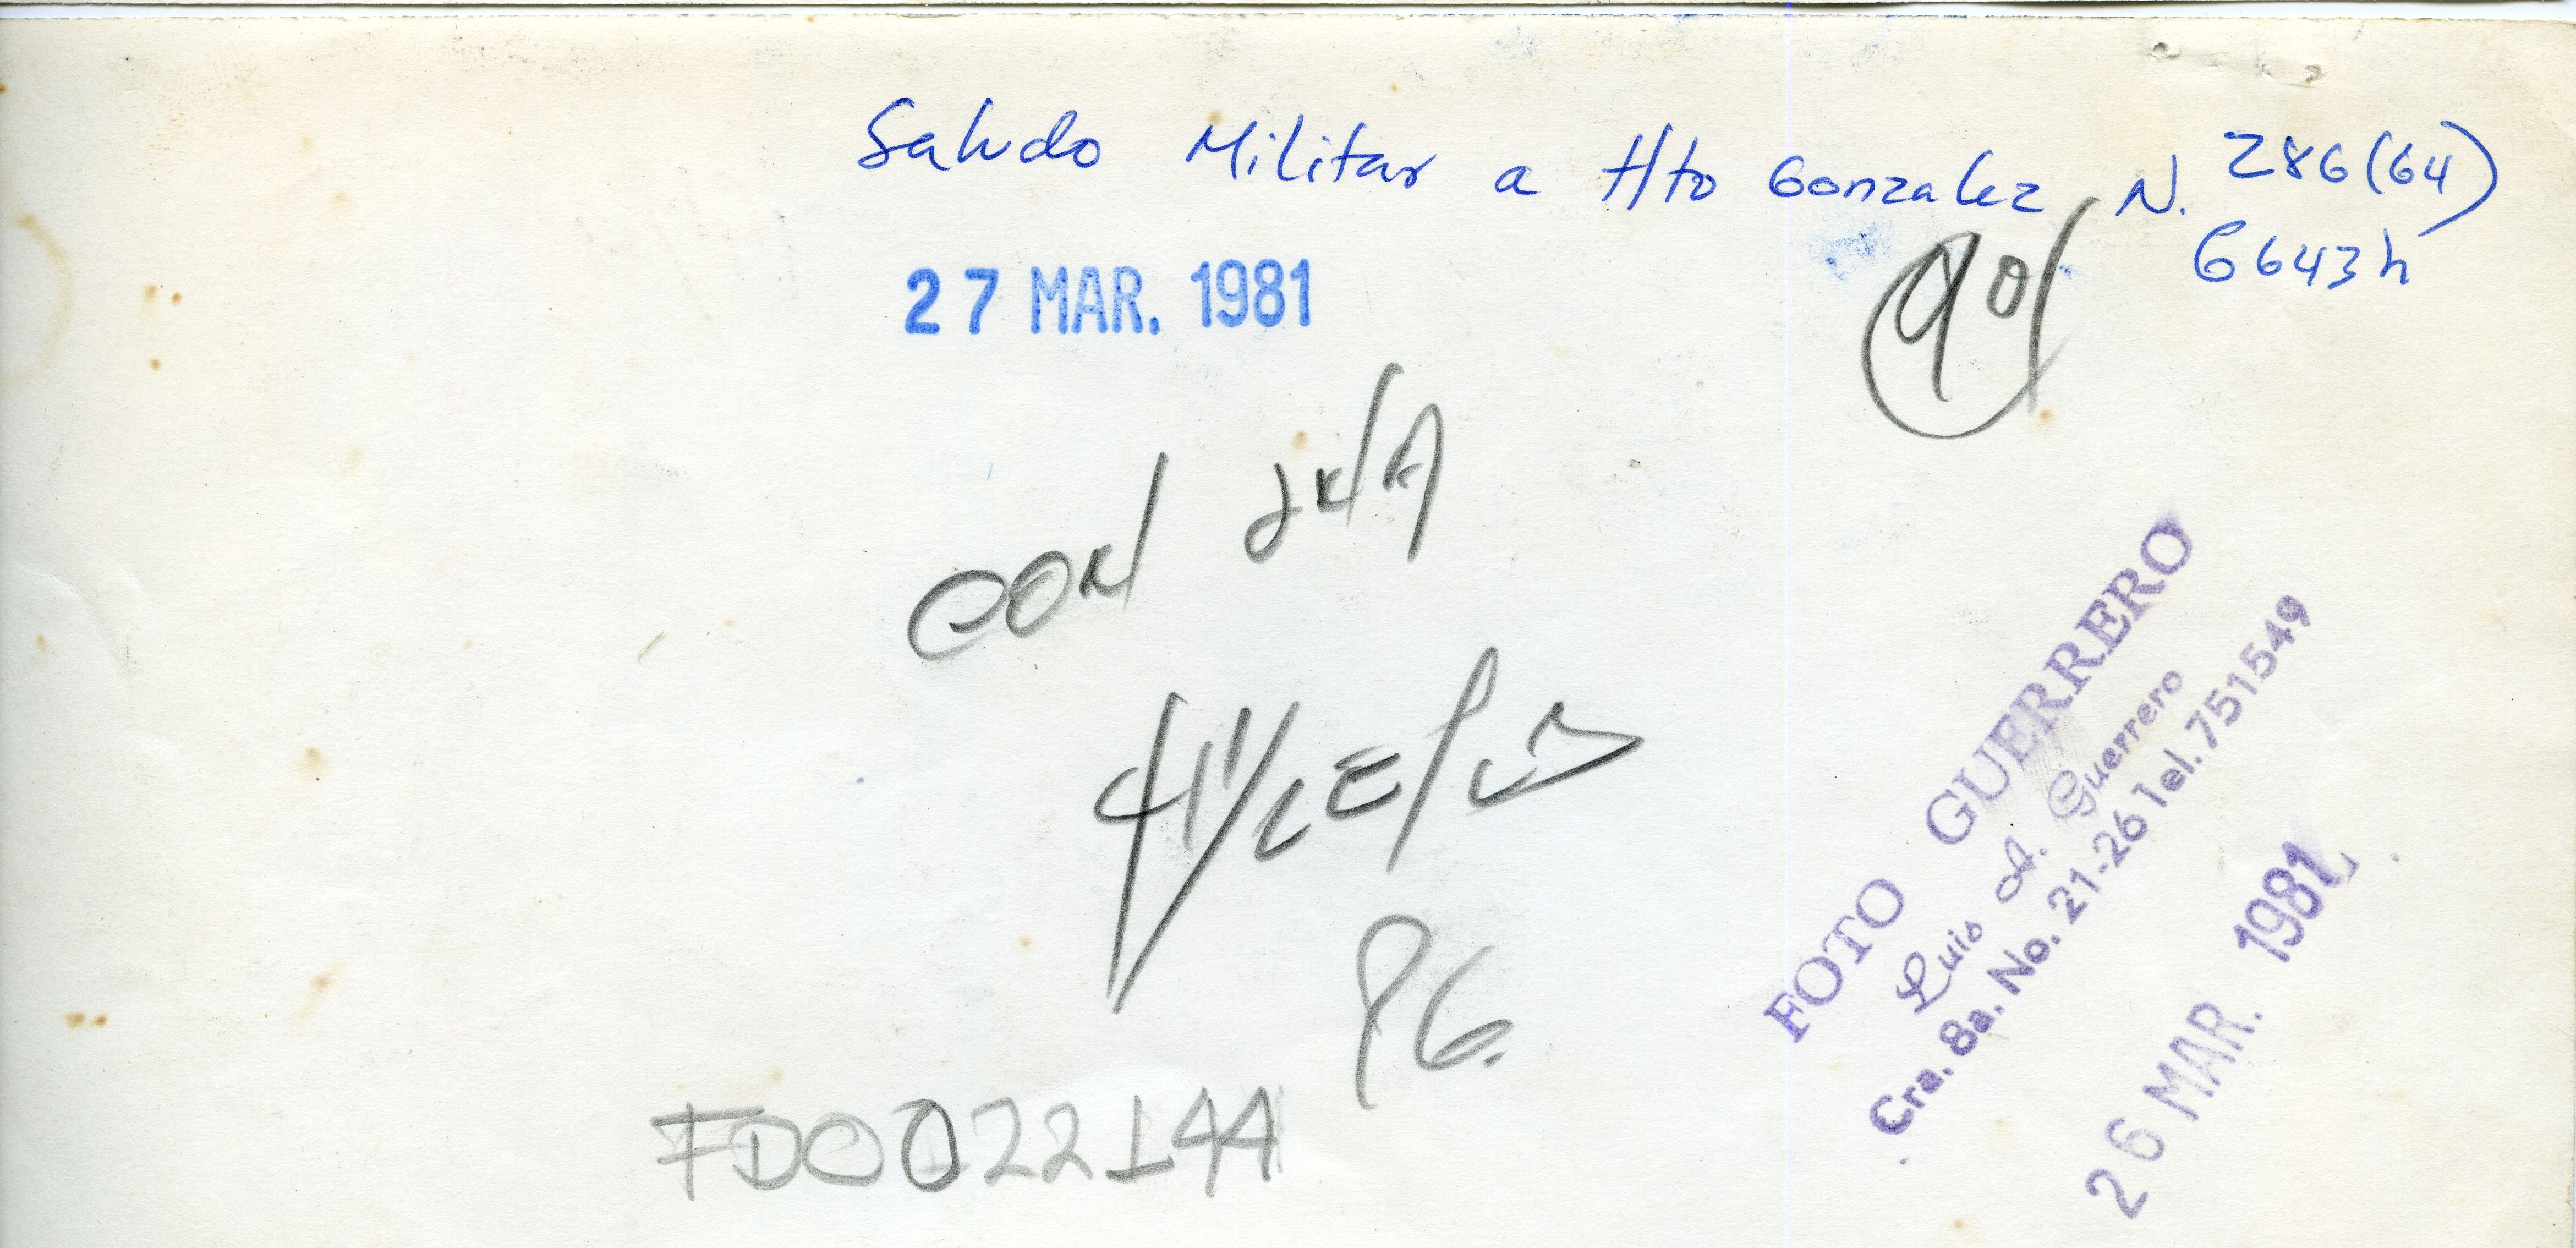 Saludo Militar a Hto Gonzalez N. 286(64)
6643h
27 MAR. 1981
90
CON
FOTO GUERRERO
Luis A. Guerrero
Cra. 8a. No. 21-26 Tel. 751549
26 MAR. 1981
P6.
FDO022144